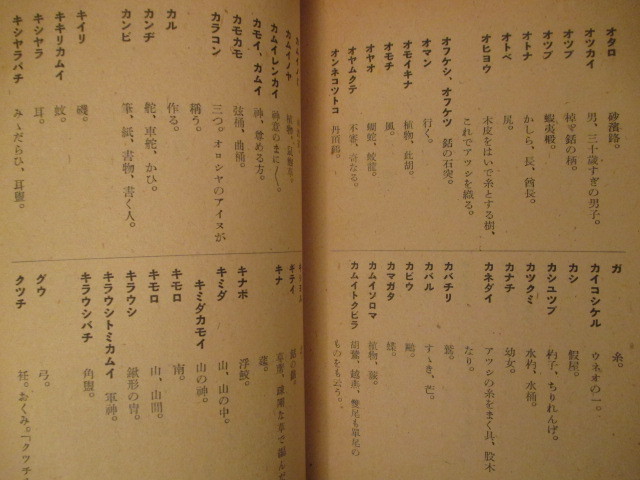 オタロ 砂濱路。
オツカイ 男、三十歳すぎの男子。
オツプ 棹、銛の柄。
オツプ 蝦夷椴。
オトナ かしら、長、酋長。
オトベ 尻。
オヒヨウ 木皮をはいで糸とする樹、
これでアツシを織る。
オフケシ、オフケツ 銛の石突。
オマン 行く。
オモイキナ 植物、此胡。
オモチ 風。
オヤオ 蝴蛇、蛟龍。
オヤムクテ 不審、奇なる。
オンネコツトコ 丹頂鶴。
ガ 糸。
カイコシケル ウネオの一。
カシ 假屋。
カシユツブ 杓子、ちりれんげ。
カツクミ 水杓、水桶。
カナチ 幼女。
カネダイ アツシの糸をまく具、股木
なり。
カバチリ 鷲。
カバル すゝき、芒。
カビウ 鷗。
カマガタ 鰈。
カムイソロマ 植物、蕨。
カムイトクピラ 胡鷲、越夷、
ものをも云う。
カムイノヤ 植物、
カムイレンカイ 神意のまに〱。
カモイ、カムイ 神、尊める方。
カモカモ 弦桶、曲桶。
カラコン 三つ。オロシヤのアイヌが
稱う。
カル 作る。
カンヂ 舵、車舵、かひ。
カンビ 筆、紙、書物、書く人。
キイリ 磯。
キキリカムイ 蚊。
キシヤラ 耳。
キシヤラバチ みゝだらひ、耳盥。
キテイ
キナ 草席、
蓬。
キナボ 浮鮫。
キミダ 山、山の中。
キミダカモイ 山の神。
キモロ 南。
キモロ 山、山間。
キラウシ 鍬形の冑。
キラウシトミカムイ 軍神。
キラウシバチ 角盥。
グウ 弓。
クツチ 衽。おくみ。「クツチ